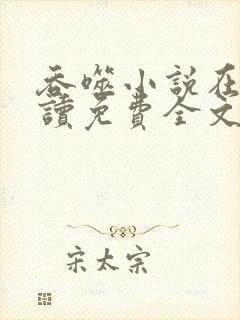 吞噬小説在
讀免費全文
宋太宗